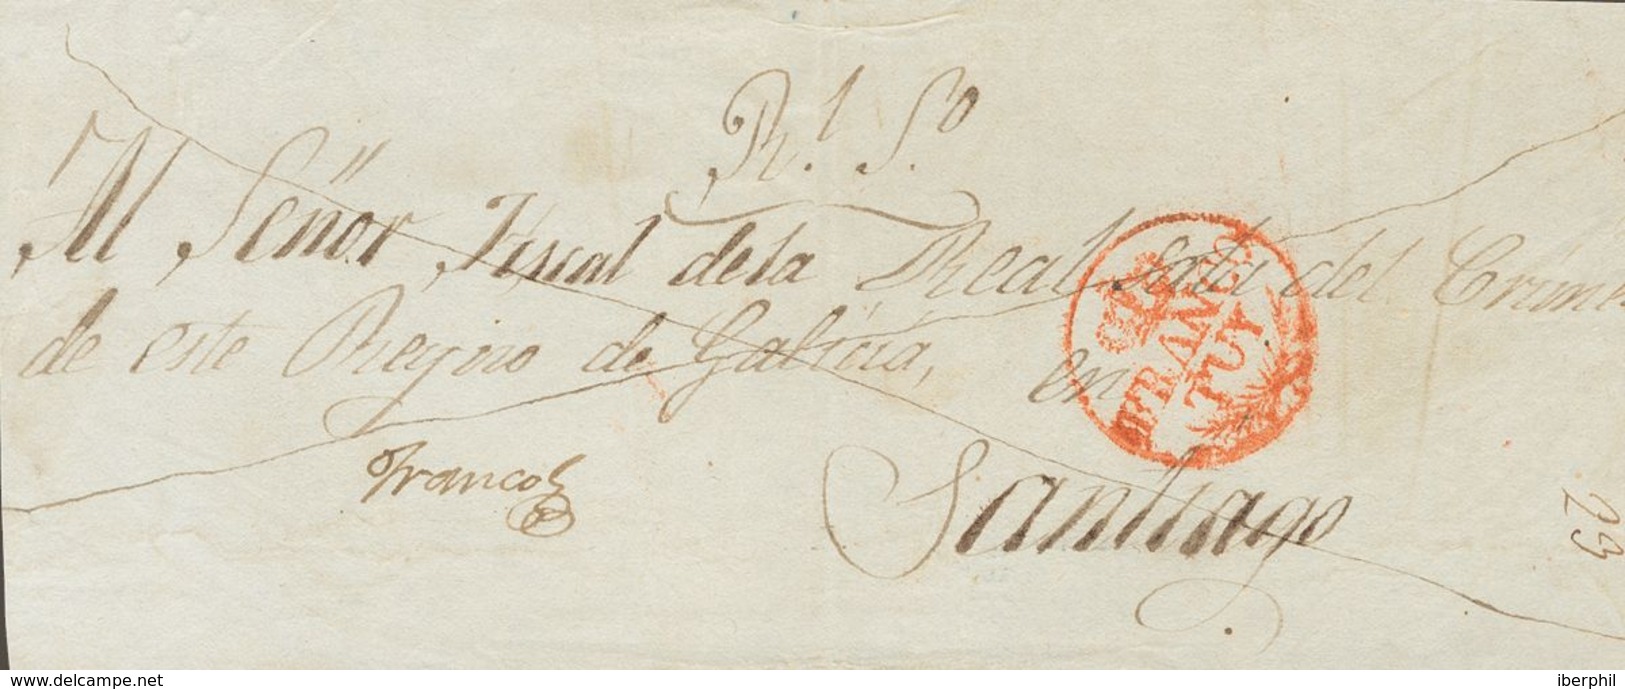 R.l S.o
Al Señor Fiscal de la Real Sala del Crimen
de este Reyno de Galicia, en
Santiago
Franco
FRANCO
TUY
23
www.delcampe.net
iberphil